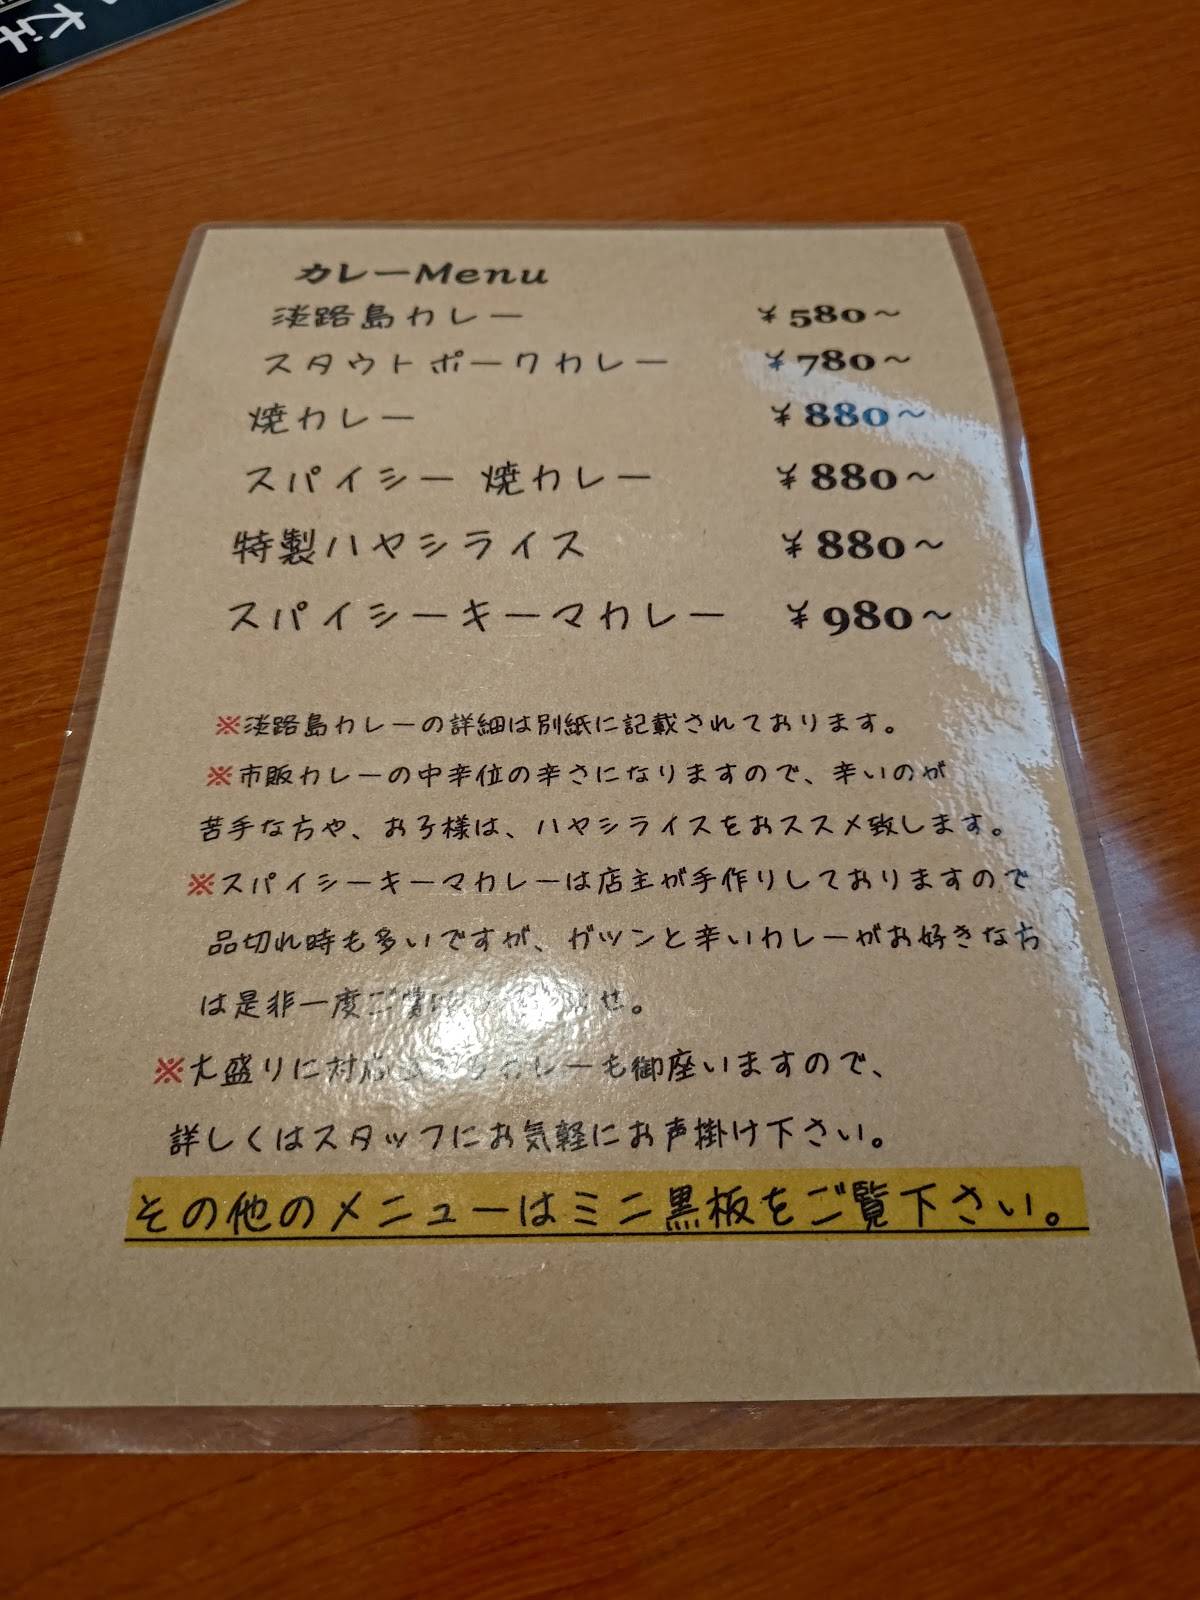 カレーMenu
淡路島カレー ¥580～
スタウトポークカレー ¥780～
焼カレー ¥880～
スパイシー 焼カレー ¥880～
特製ハヤシライス ¥880～
スパイシーキーマカレー ¥980～
※淡路島カレーの詳細は別紙に記載されております。
※市販カレーの中辛位の辛さになりますので、辛いのが
苦手な方や、お子様は、ハヤシライスをおススメ致します。
※スパイシーキーマカレーは店主が手作りしておりますので
品切れ時も多いですが、ガツンと辛いカレーがお好きな方
は是非一度ご賞 せ。
※大盛りに対応 カレーも御座いますので、
詳しくはスタッフにお気軽にお声掛け下さい。
その他のメニューはミニ黒板をご覧下さい。